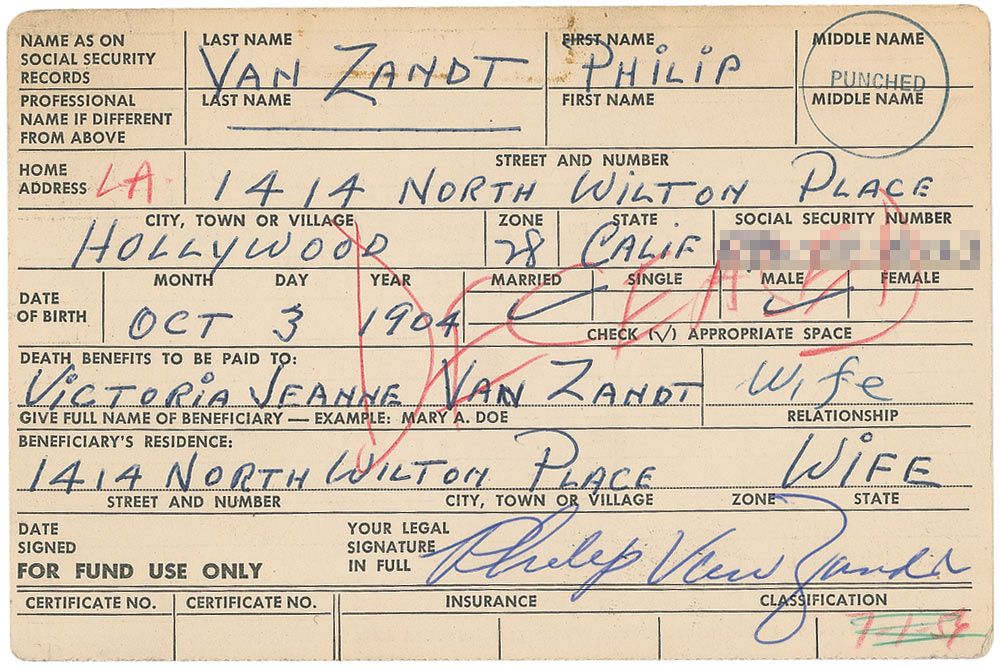 NAME AS ON SOCIAL SECURITY RECORDS
LAST NAME
VAN ZANDT
FIRST NAME
PHILIP
MIDDLE NAME
PUNCHED
PROFESSIONAL NAME IF DIFFERENT FROM ABOVE
LAST NAME
FIRST NAME
MIDDLE NAME
HOME ADDRESS
LA
STREET AND NUMBER
1414 NORTH WILTON PLACE
CITY, TOWN OR VILLAGE
HOLLYWOOD
ZONE
28
STATE
CALIF
SOCIAL SECURITY NUMBER
DECEASED
DATE OF BIRTH
MONTH DAY YEAR
OCT 3 1904
MARRIED SINGLE MALE FEMALE
CHECK (√) APPROPRIATE SPACE
DEATH BENEFITS TO BE PAID TO:
VICTORIA JEANNE VAN ZANDT
Wife
GIVE FULL NAME OF BENEFICIARY — EXAMPLE: MARY A. DOE
RELATIONSHIP
BENEFICIARY'S RESIDENCE:
1414 NORTH WILTON PLACE WIFE
STREET AND NUMBER CITY, TOWN OR VILLAGE ZONE STATE
DATE SIGNED
YOUR LEGAL SIGNATURE IN FULL
Philip Van Zandt
FOR FUND USE ONLY
CERTIFICATE NO. CERTIFICATE NO. INSURANCE CLASSIFICATION